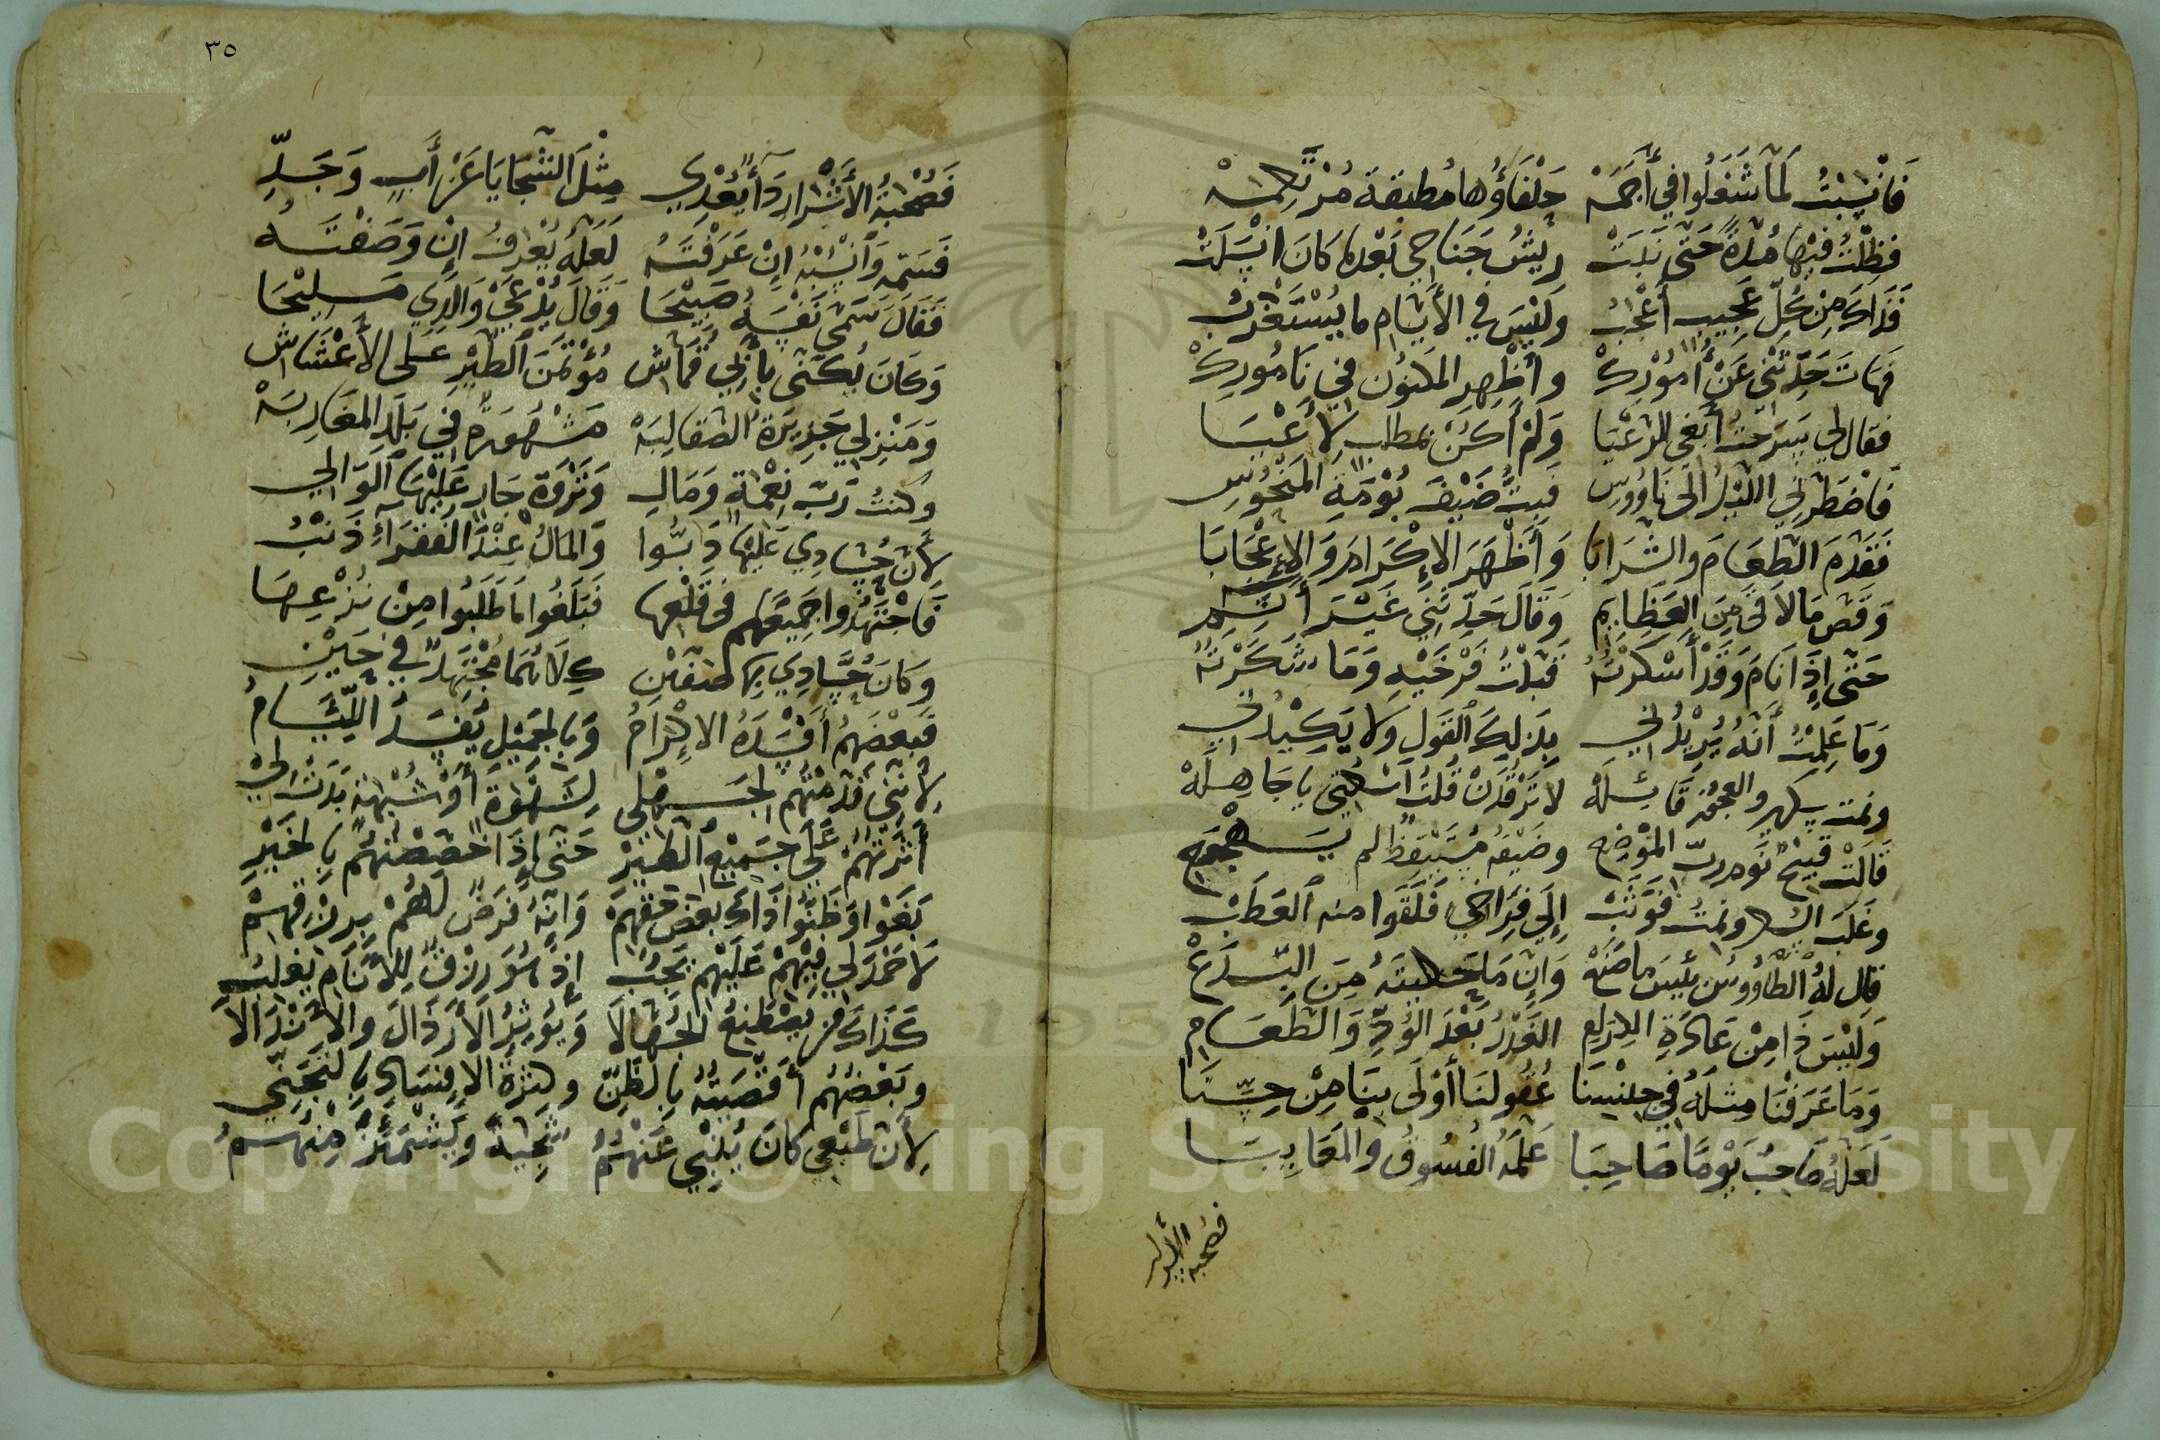 فَانْسَبْتُ لَمَّا شُغِلُوا فِي أَجَمَهْ حَلْفَاؤُهَا مُطبِقة مُرْتَكِمَهْ
فَظَلْتُ فيْهَا مُدَّةً حَتَّى نَبَتَتْ رِيْشُ جَنَاحِي بَعْدَمَا كَانَ انْسَلَتْ
فَذَاكَ مِنْ كُلِّ عَجِيبٍ أَعْجَبُ وَلَيْسَ فِي الأَيَّامِ مَا يُسْتَغْرَبُ
فَهَاتَ حَدِّثْنِي عَنْ أُمُوْرِكْ وأَظْهِرِ المَكنُوْنَ فِي نَامُورِكْ
فقال لي سَرَحْتُ أَبْغِي الرَّعْيَا وَلَمْ أَكُنْ بمطلبي لأَعْيَا
فَاضْطَرَّنِي اللَّيْلُ الَى نَاوُوسِ فَبِتُّ ضَيْفَ بُوْمَةِ المَنْحُوْسِ
فَقَدَّمَ الطَّعَامَ والشَّرَابَا وَأَظْهَرَ الإِكْرَامَ وَالإِعْجَابَا
وَقَصَّ مَا لَاقَى مِنَ العَظَايِمِ وَقَالَ حَدِّثْنِي غَيْرَ
حَتَّى إِذَا نَامَ وَقَدْ أَسْكَرْتُهُ قَبَّلْتُ فَرْخَيْهِ وَمَا شَكَرْتُهُ
وَمَا عَلِمْتُ أَنَّهُ يُرِيْدُنِي بِذَلِكَ القَوْلِ وَلَا يَكِيْدُنِي
ونمت والعجوز قَائِلَهْ لَا تَرْقُدَنْ قُلتُ اسْكُتِي يَا جَاهِلَهْ
قَالَتْ قَبِيْحٌ نَوم ربّ المَوْضِعِ وضيفه مُسْتَيْقِظٌ لم يَهْجَعِ
وغلب ونمتُ فَوَثَبْ إِلَى فِرَاخِي فَلَقَوا منه العَطَبْ
قال لهُ الطَّاوُوسُ بِئْسَ ما صَنَعْ وَإِنَّ مَا حَكَيتَهُ مِنَ البِدَعْ
وَلَيْسَ ذَا مِنْ عَادَةِ الغَدْرُ بَعْدَ الوُدِّ وَالطَّعَامِ
وَمَا عَرَفْنَا مِثلَهُ فِي جِنْسِنَا عُقُولنَا أَوْلَى بِنَا مِنْ حِسِّنَا
لَعَلَّهُ صَاحَبَ يَوْمًا صَاحِبَا عَلَّمَهُ الفُسُوقَ وَالمَعَايِبَا
فصحبة الأشرار
٣٥
فَصُحْبَةُ الأَشْرَارِ دَأْبًا يُعْدِي مِثْلَ السَّجَايَا عَنْ أَبٍ وَجَدِّ
فَسَمِّهِ وَانْسُبْهُ إِنْ عَرَفْتَهُ لَعَلَّهُ يُعْرَفُ إِنْ وَصَفْتَهُ
فَقَالَ سَمَّى نَفْسَهُ صَبِيْحَا وَقَالَ يُدْعَى وَالِدِي مَلِيْحَا
وَكَانَ يُكْنَى بِأَبِي قُمَاشِ مُؤْتَمَنَ الطَّيْرِ عَلَى الأَعْشَاشِ
وَمَنْزِلِي جَزِيْرَةُ الصَّقَالِبَهْ مَشْهُورَةٌ فِي بَلَدِ المَغَارِبَهْ
وكنتُ رَبَّ نِعْمَةٍ وَمَالِ وَثَرْوَةٍ جَارَ عَلَيْهَا الوَالِي
لأَنَّ حُسَّادِي عَلَيْهَا دَبُّوا وَالمَالُ عِنْدَ الفُقَرَاءِ ذَنْبُ
فَاجْتَهَدُوا جَمِيْعُهُم فِي قَلْعِهَا فَبَلَغُوا مَا طَلَبُوا مِنْ نَزْعِهَا
وَكَانَ حُسَّادِي بِهَا صِنفَيْنِ كِلَاهُمَا مُجْتَهِدٌ فِي حَيْنِي
فَبَعْضُهُمْ أَفْسَدَهُ الإِكْرَامُ وَبِالجَمِيْلِ يَفْسَدُ اللِّئَامُ
لأَنَّنِي قَدَّمْتُهُم لِشَهْوَةٍ أَوْ شُبْهَةٍ بَدَتْ لِي
أَثَرْتُهُمْ عَلَى جَمِيْعِ الطَّيْرِ حَتَّى إِذَا خَصَصْتُهُمْ بِالخَيْرِ
بَغَوْا وَظَنُّوا ذَاكَ بعْضَ حَقِّهِمْ وَانَّهُ فَرْضٌ لَهُمْ بِرِزْقِهِمْ
لَا حَمْدَ لِي فِيْهِمْ عَلَيْهِمْ يَجِبُ
كَذَاكَ مَنْ يَصْطَنِعُ الجُهَّالَا وَيُؤْثِرُ الأَرْذَالَ والأَنْذَالَا
وبَعْضُهُم أَقْصَيْتُهُ بِالظَّنِّ وكثرةُ الإِفسَادِ بِالتَّجَنِّي
لأَنَّ طَبْعِي كَانَ يُنْبِي عَنْهُمُ وَيَشْمَئِزُّ مِنْهُمُ